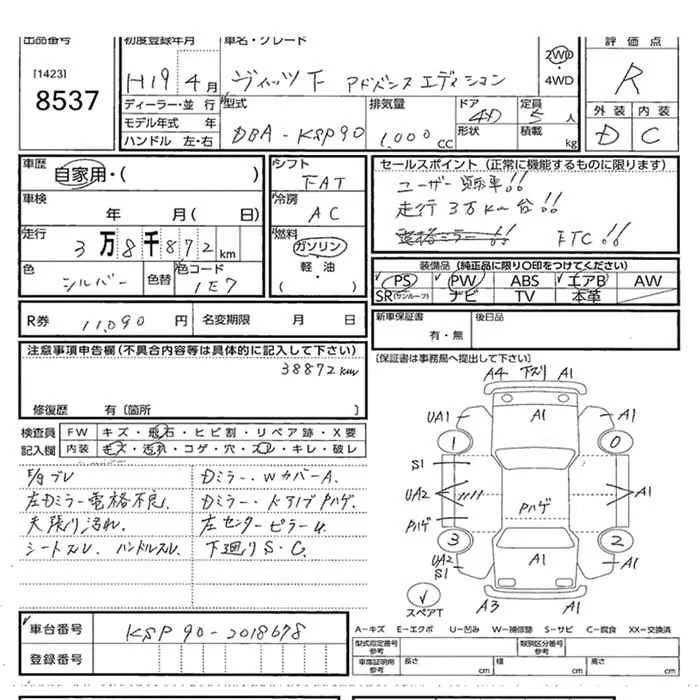 出品番号 初度登録年月 車名・グレード 評価点
[1423]
8537
H19年 4月 ヴィッツ F アドバンスエディション
2WD
・4WD
R
ディーラー・並行 型式 排気量 ドア 定員
モデル年式 年 DBA-KSP90 1,000cc 4D 5人
ハンドル 左・右 形状 積載 kg
外装 内装
D C
車歴 自家用・( )
シフト FAT
セールスポイント (正常に機能するものに限ります)
ユーザー買取車!!
車検 年 月( 日)
冷房 AC
走行3万km台!!
走行 3万8千872km
燃料 ガソリン
軽・油
( )
ETC!!
色 シルバー 色替 色コード 1E7
装備品 (純正品に限り〇印をつけてください)
PS PW ABS エアB AW
SR(サンルーフ) ナビ TV 本革
R券 11,090円 名変期限 月 日
新車保証書 後日品
有・無
[保証書は事務局へ提出して下さい]
注意事項申告欄(不具合内容等は具体的に記入して下さい)
38872km
修復歴 有〔箇所 〕
検査員 FW キズ・飛石・ヒビ割・リペア跡・X要
記入欄 内装 キズ・汚れ・コゲ・穴・スレ・キレ・破レ
左Dミラー電格不良.
天張り汚れ.
シートスレ ハンドルスレ.
Dミラー・WカバーA.
Dミラー・ドアノブPハゲ.
左センターピラーU
下廻りS・C.
A4 下ズリ A1
A1
UA1 A1
1 0
S1
UA2 A1
Pハゲ
Pハゲ
3 2
UA2 A1 A1
S1
スペアT
A3 A1
A-キズ E-エクボ U-凹み W-補修跡 S-サビ C-腐食 XX-交換済
車台番号 KSP90-2018678
登録番号
型式指定番号 参考 類別区分番号 参考
車庫証明用 参考 長さ cm 幅 cm 高さ cm